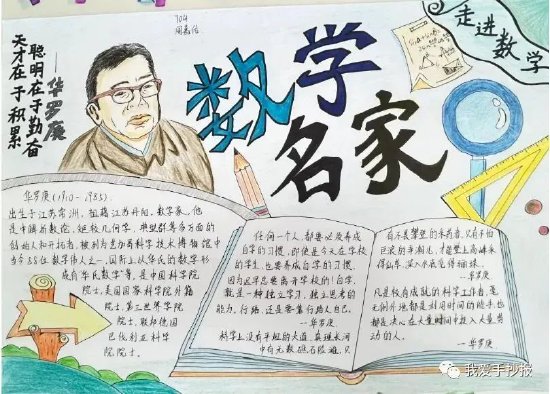 704
走进数学
聪明在于勤奋
天才在于积累
——华罗庚
数学
名家
华罗庚(1910-1985)
出生于江苏常州,祖籍江苏丹阳,数学家,他
是中国解析数论、矩阵几何学、典型群等多方面的
创始人和开拓者,被列为芝加哥科学技术博物馆中
当今88位数学伟人之一,国际上以华氏的数学形
成有“华氏数学”等,是中国科学院
院士,美国国家科学院外籍
院士,第三世界科学院
院士,联邦德国
巴伐利亚科学
院院士。
任何一个人,都要必须养成
自学的习惯,即使是今天在学校
的学生,也要养成自学的习惯,
因为迟早总要离开学校的!自学,
就是一种独立学习,独立思考的
能力,行路,还是要靠行路人自己。
——华罗庚
科学上没有平坦的大道,真理长河
中有无数礁石险滩,只
有不畏攀登的采药者,只有不怕
巨浪的弄潮儿,才能登上高峰采
得仙草,深入水底觅得骊珠。
——华罗庚
凡是较有成就的科学工作者,毫
无例外地都是利用时间的能手,也
都是决心在大量时间中投入大量劳
动的人。
——华罗庚
我爱手抄报